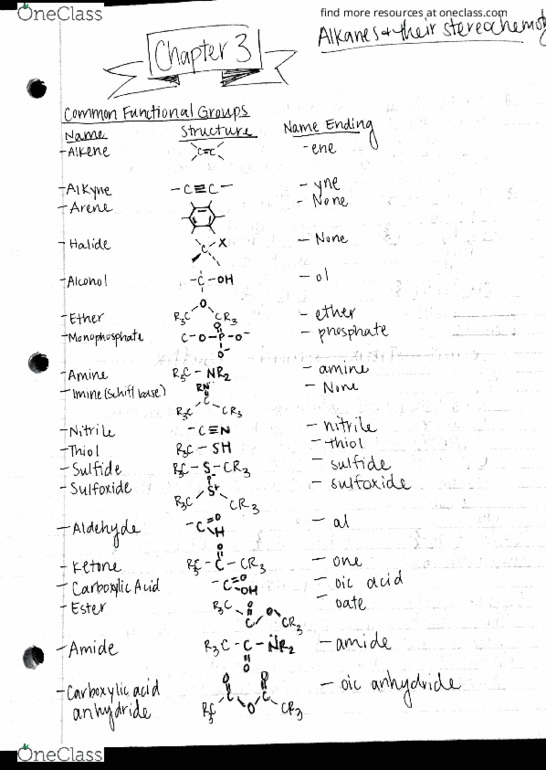 OneClass
find more resources at oneclass.com
Alkanes + their stereochemist
Chapter 3
Common Functional Groups
Name Structure Name Ending
-Alkene C=C -ene
-Alkyne -C≡C- -yne
-Arene - None
-Halide C X - None
-Alcohol -C-OH - ol
-Ether R3C O CR3 - ether
-Monophosphate C-O-P-O⁻ O O⁻ - phosphate
-Amine R3C-NR2 - amine
-Imine (Schiff base) RN C R3C CR3 - None
-Nitrile -C≡N - nitrile
-Thiol R3C-SH - thiol
-Sulfide R3C-S-CR3 - sulfide
-Sulfoxide S+ R3C CR3 - sulfoxide
-Aldehyde -C=O H - al
-Ketone O R3C-C-CR3 - one
-Carboxylic Acid -C=O OH - oic acid
-Ester R3C O C O CR3 - oate
-Amide R3C-C-NR2 O - amide
-Carboxylic acid anhydride O O R3C C O C CR3 - oic anhydride
OneClass